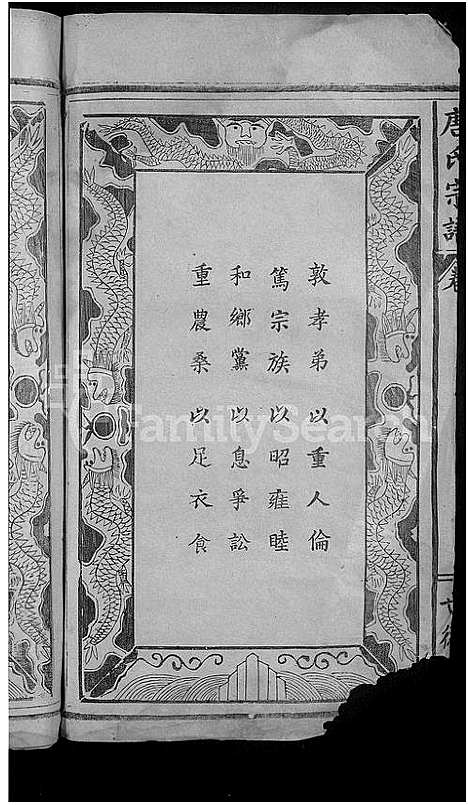 敦孝弟以重人倫
篤宗族以昭雍睦
和鄉黨以息爭訟
重農桑以足衣食
唐氏宗譜
卷
FamilySearch